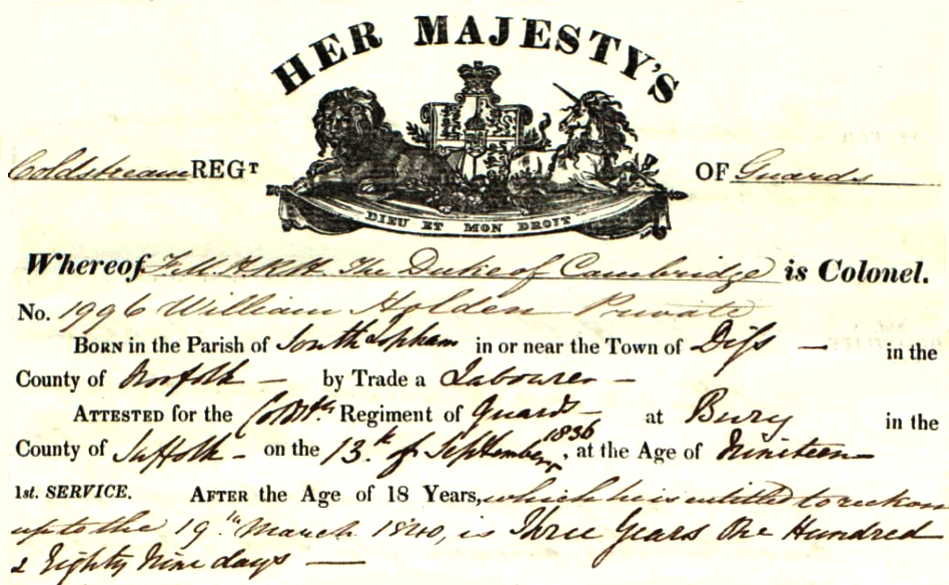 HER MAJESTY'S
Coldstream REGT OF Guards
DIEU ET MON DROIT
Whereof F.M. H.R.H. The Duke of Cambridge is Colonel.
No. 1996 William Holden Private
BORN in the Parish of South Lopham in or near the Town of Diss — in the
County of Norfolk — by Trade a Labourer —
ATTESTED for the Coldm. Regiment of Guards — at Bury in the
County of Suffolk — on the 13th of September 1836, at the Age of Nineteen
1st. SERVICE. AFTER the Age of 18 Years, which he is entitled to reckon
up to the 19th March 1840, is Three Years One Hundred
& Eighty Nine days —